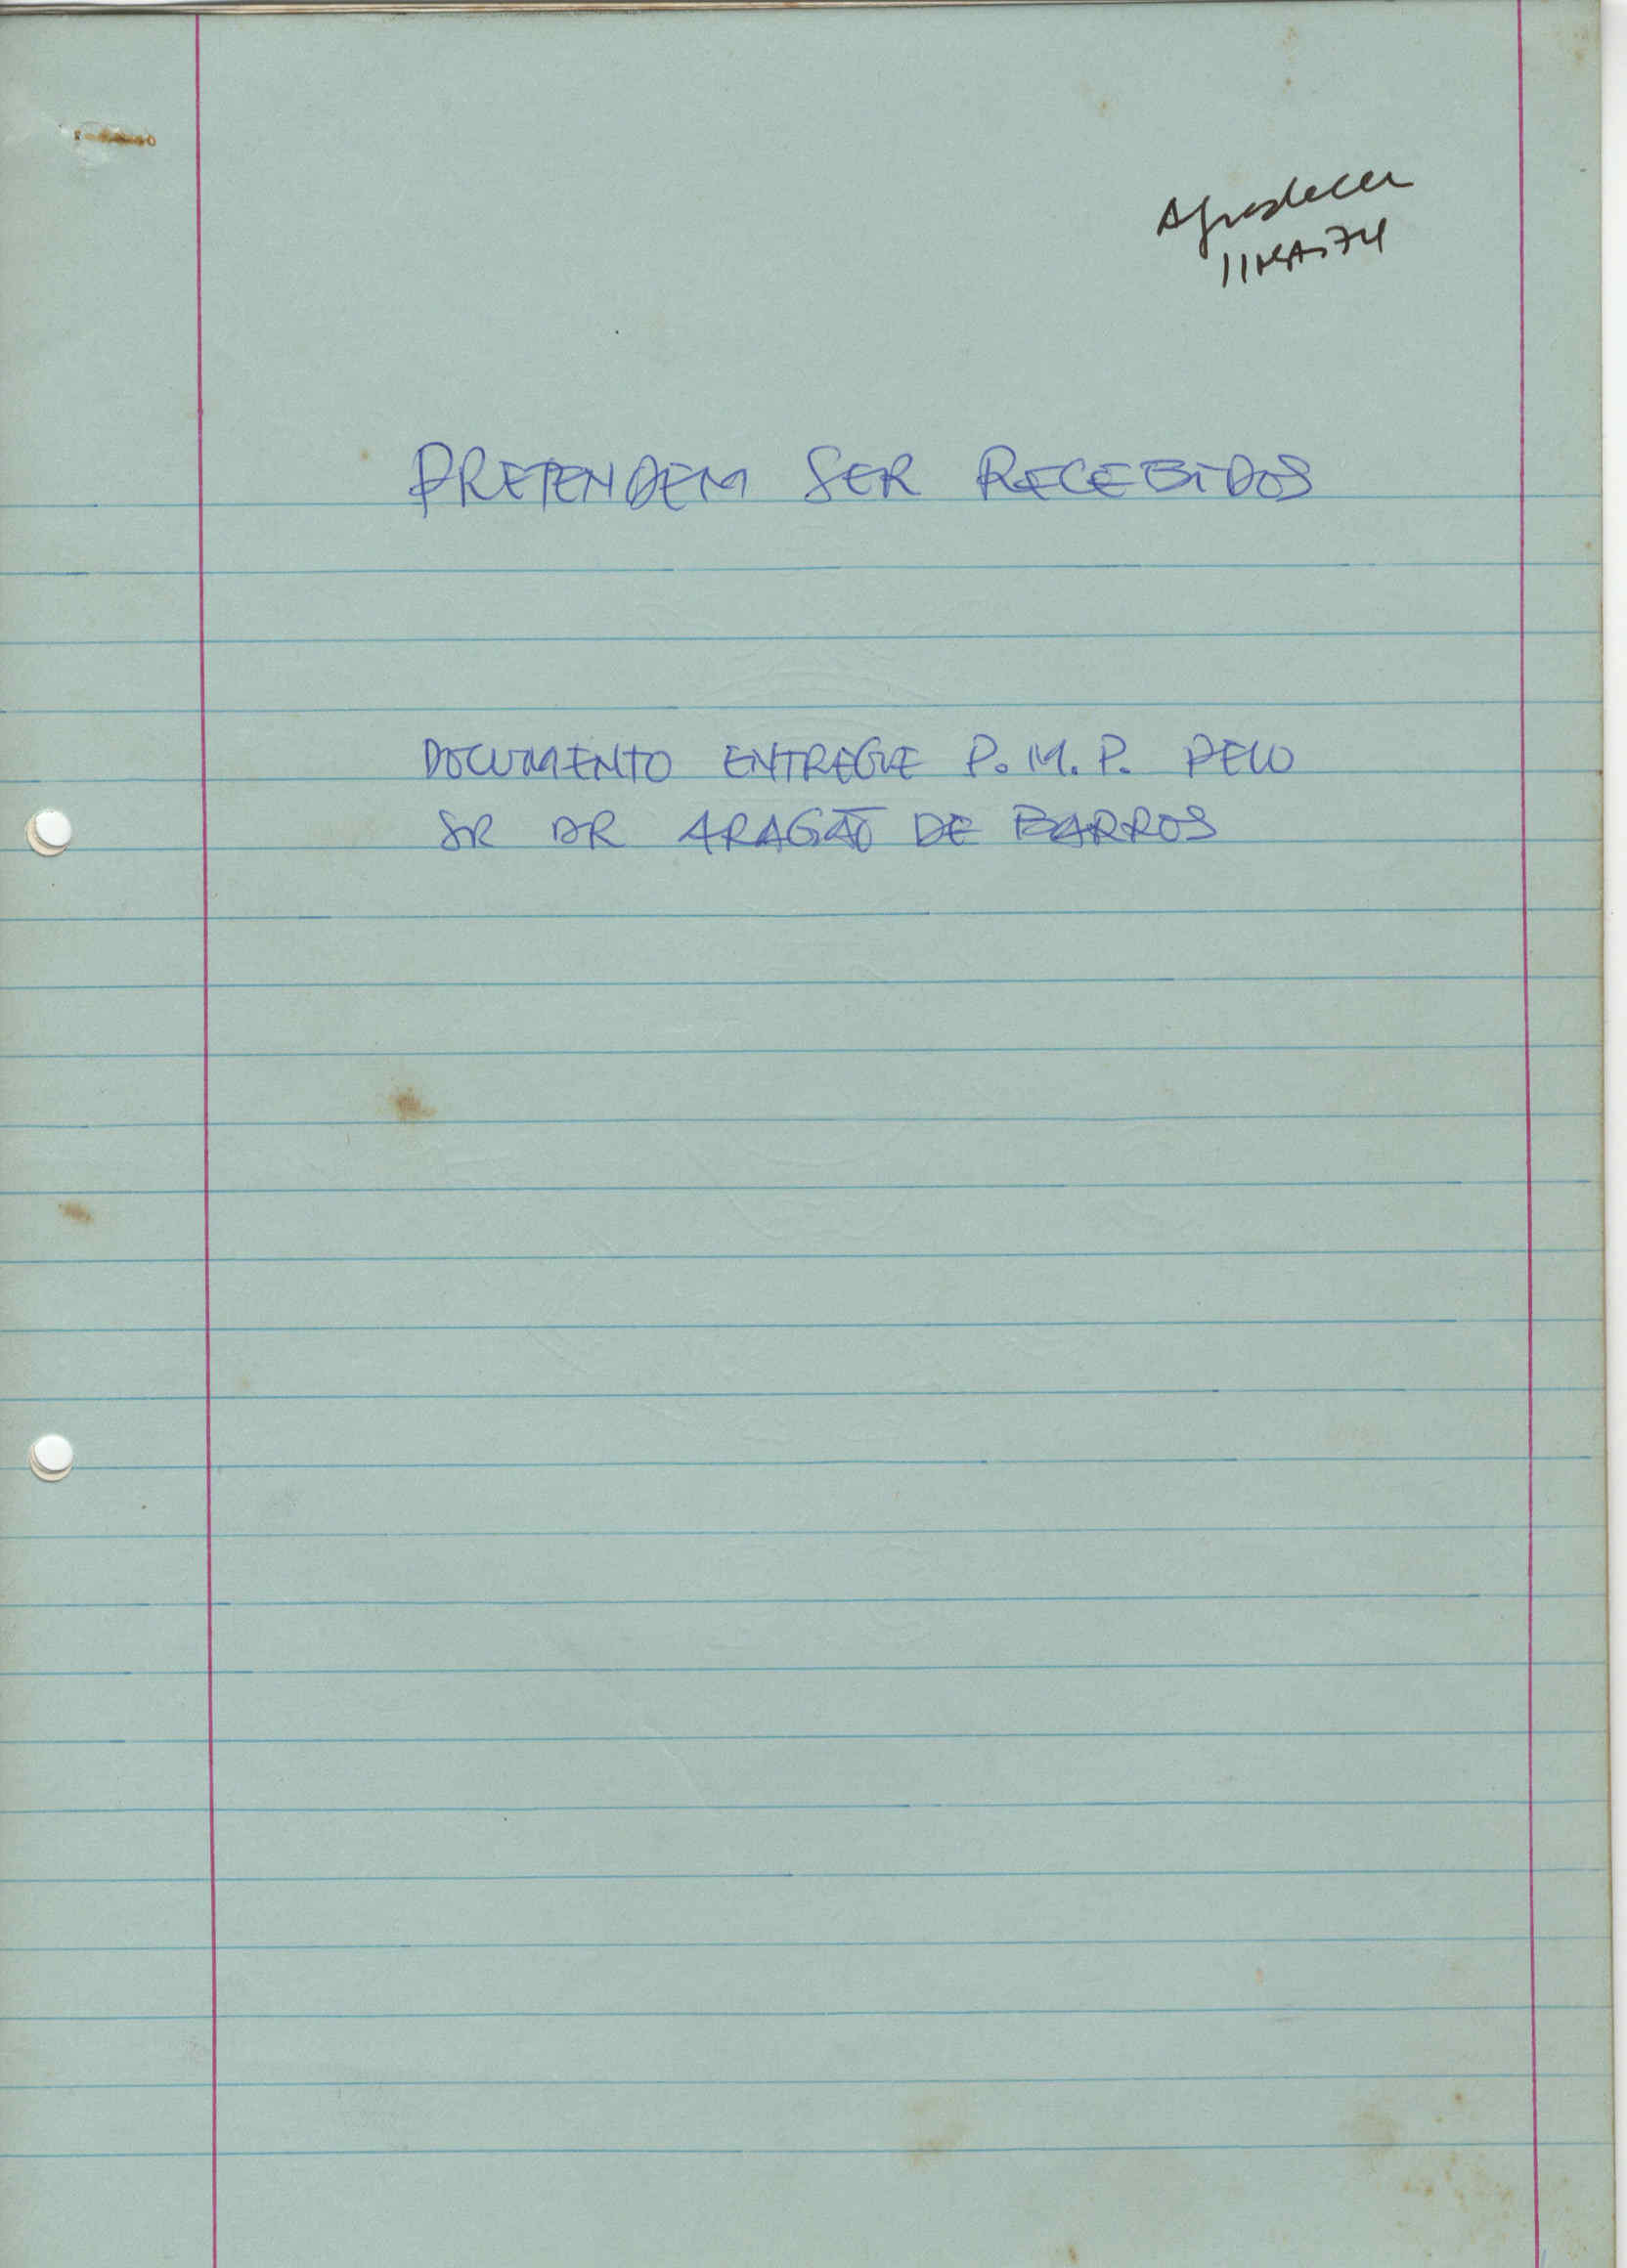 Agradecer
11MAI74
PRETENDEM SER RECEBIDOS
DOCUMENTO ENTREGUE P.M.P. PELO
SR DR ARAGÃO DE BARROS